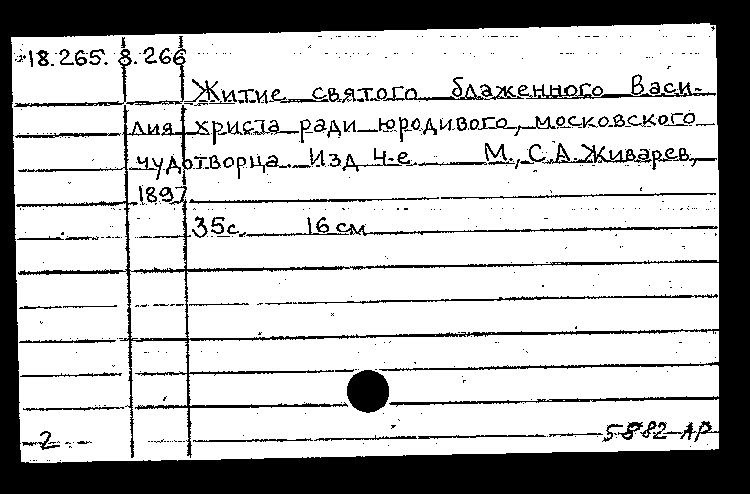 18.265. 8.266
Житие святого блаженного Васи-
лия христа ради юродивого, московского
чудотворца Изд 4-е М., С.А. Живарев,
1897.
35с. 16 см
2 5882-АР